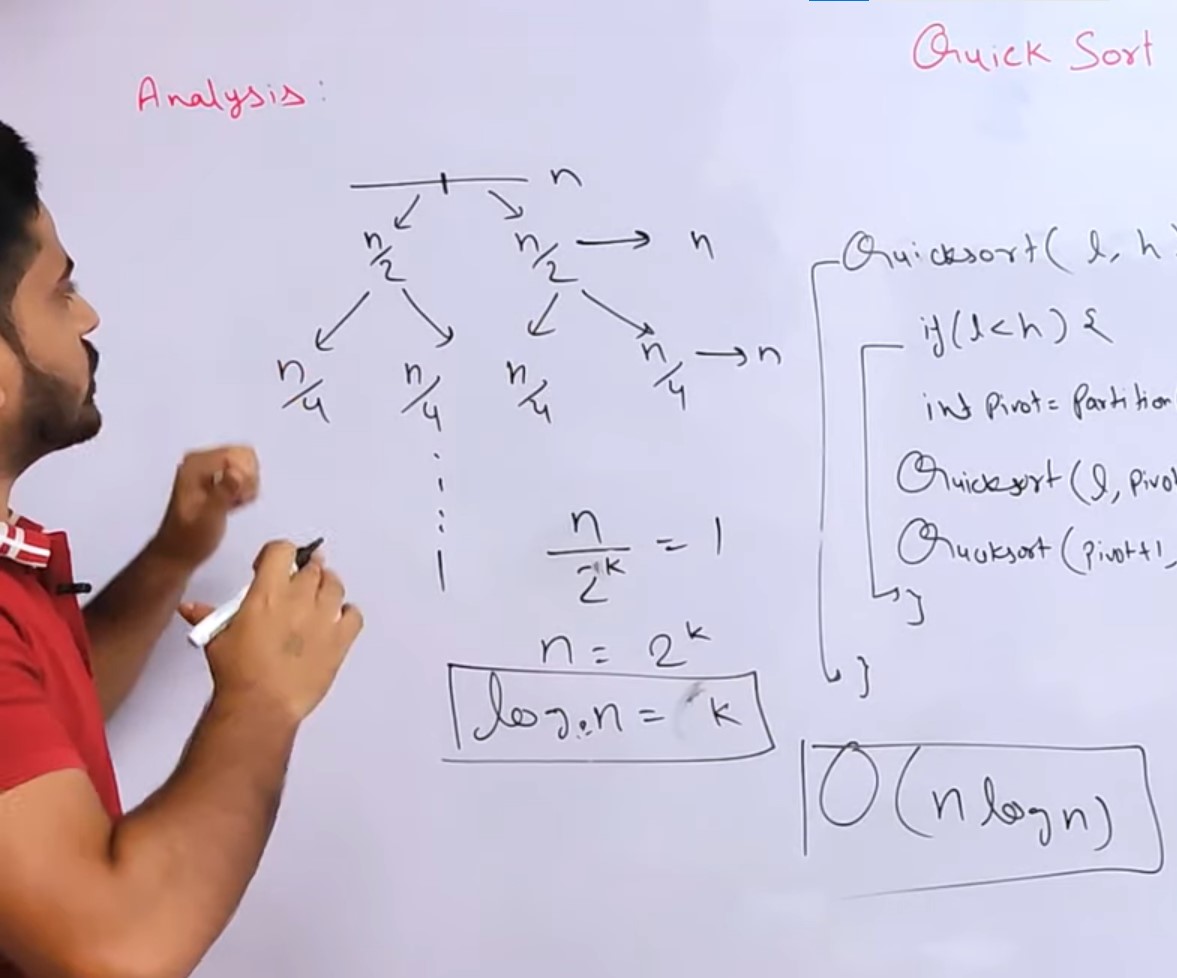 Quick Sort
Analysis:
n
n/2 n/2 → n
n/4 n/4 n/4 n/4 → n
1
n/2^k = 1
n = 2^k
log₂n = k
Quicksort( l, h
if(l<h) {
int Pivot = Partition
Quicksort (l, Pivot
Quicksort (Pivot+1,
}
}
O(n log n)